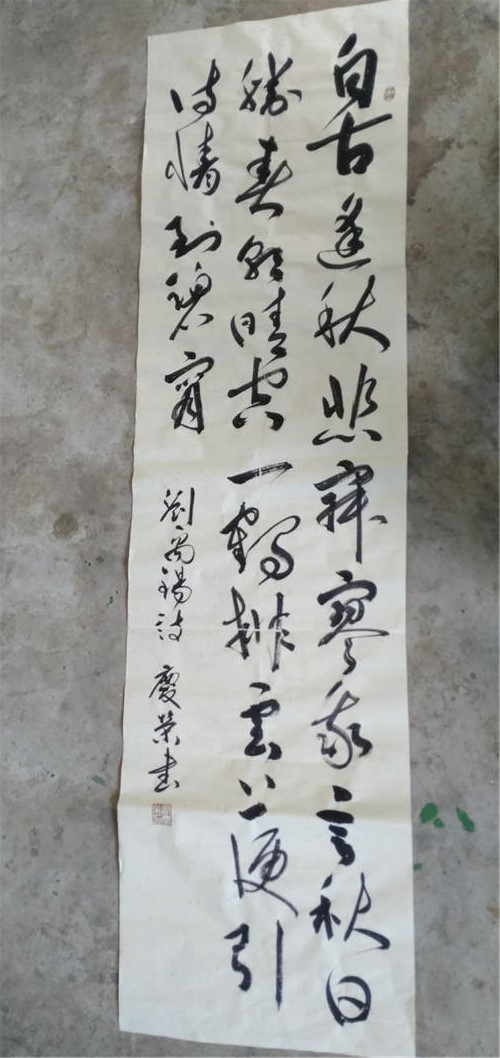 自古逢秋悲寂寥我言秋日
勝春朝晴空一鶴排雲上便引
诗情到碧宵
劉禹錫诗 慶榮书